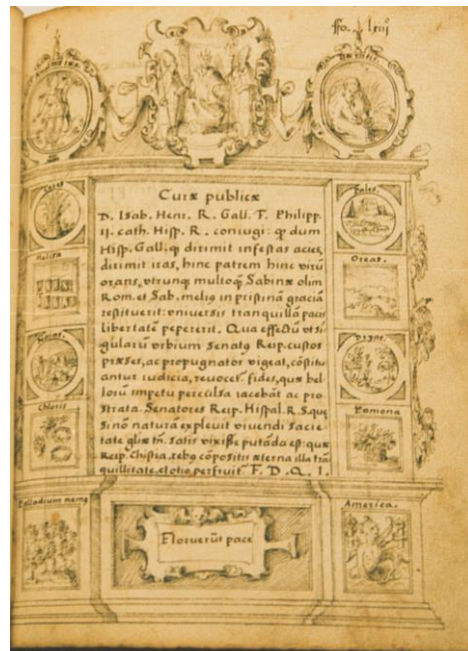 ffo. lxiij
Curæ publicæ
D. Isab. Henr. R. Gall. F. Philipp.
II. cath. Hisp. R. coniugi: q̄ dum
Hisp. Gall. q̄ dirimit infestas acies,
dirimit iras, hinc patrem hinc virū
orans, utrunq̄ multoq̄ Sabinæ olim
Rom. et Sab. meliꝰ in pristinā graciā
restituerit: universis tranquillā pacis
libertatē pepererit. Qua effectū ut si
gularū urbium Senatꝰ Reip. custos
præses, ac propugnator vigeat, cōstitu
antur iudicia, revocet̄ fides, quæ bel
lorū impetu perculsa iacebāt ac pro
strata. Senatores Reip. Hispal. R. S. que
si nō natura explevit vivendi sacie
tate glīæ tn̄. satis vixisse putāda est: quæ
Reip. Chistia. rebꝰ cōpositis æterna illa trā
quillitate, et otio perfruit̄. F. D. Q. I.
Ceres
Pales.
Melissa
Oreas.
Chloris
Pomona
Palladium nemꝰ
America.
Floruerūt pace